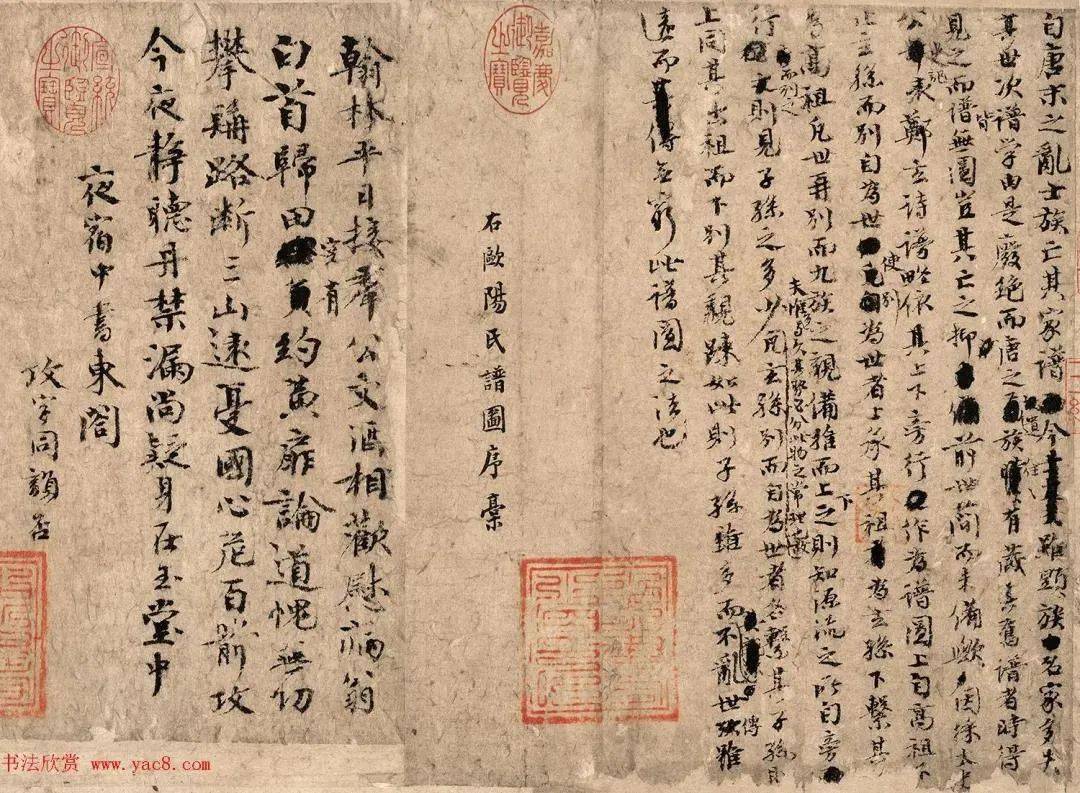 自唐末之亂士族亡其家譜今雖顯族名家多失
其世次譜學由是廢絕而唐之遺族往往有藏其舊譜者時得
見之而譜皆無圖豈其亡之抑前世簡而未備歟因採太史
公表鄭玄詩譜略依其上下旁行作為譜圖上自高祖下
止玄孫而別自為世使別為世者上承其祖為玄孫下繫其
為高祖凡世再別而九族之親備推而上之則知源流之所自旁
行而列之則見子孫之多少夫惟多與久其勢必分此物之常理凡玄孫別而自為世者各繫其子孫則
上同其出祖而下別其親疎如此則子孫雖多而不亂世傳雖
遠而無窮此譜圖之法也
右歐陽氏譜圖序稾
翰林平日接群公文酒相歡慰病翁
白首歸田空有約黃扉論道愧無功
攀髯路斷三山遠憂國心危百箭攻
今夜靜聽丹禁漏尚疑身在玉堂中
夜宿中書東閣
嘉慶御覽之寶
宣統御覽之寶
书法欣赏 www.yac8.com